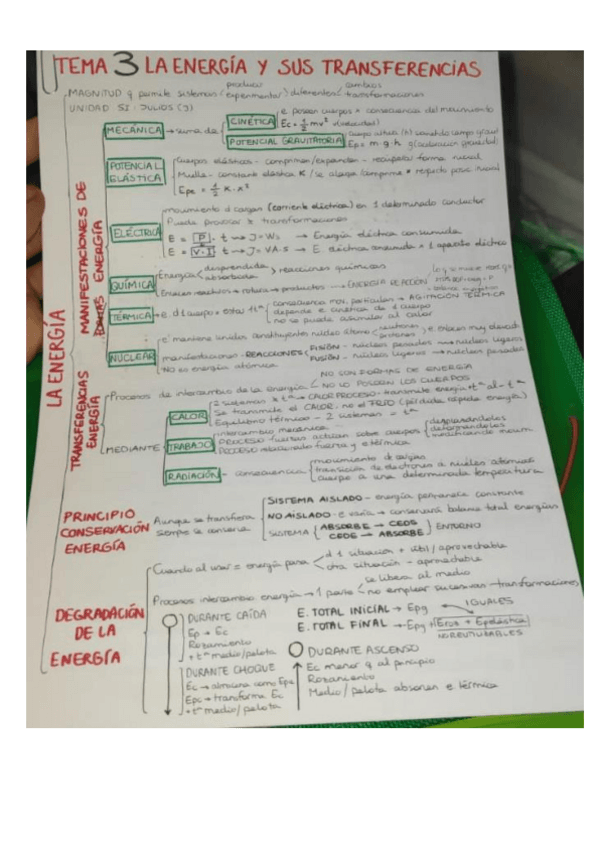 TEMA 3 LA ENERGÍA Y SUS TRANSFERENCIAS
LA ENERGÍA
MAGNITUD q permite sistemas (producir experimentar) diferentes (cambios transformaciones
UNIDAD SI: JULIOS (J)
MANIFESTACIONES DE ENERGÍA
MECÁNICA → suma de
CINÉTICA e poseen cuerpos x consecuencia del movimiento
Ec = 1/2 mv² v (velocidad)
POTENCIAL GRAVITATORIA
Ep = m·g·h
POTENCIAL ELÁSTICA
Cuerpos elásticos - compriman/expandan - recuperar forma inicial
Muelle - constante elástica K / se alarga/comprime x respecto posic inicial
Epe = 1/2 K·x²
ELÉCTRICA
movimiento d cargas (corriente eléctrica) en 1 determinado conductor
Puede provocar transformaciones
E = P · t → J = W·s → Energía eléctrica consumida
E = V·I · t → J = VA·s → E. eléctrica consumida x 1 aparato eléctrico
QUÍMICA
Energía (desprendida absorbida) reacciones químicas
Enlaces reactivos → rotura → productos → ENERGÍA REACCIÓN
TÉRMICA → e. d 1 cuerpo x estar tª
consecuencia mov. partículas → AGITACIÓN TÉRMICA
depende e cinética de 1 cuerpo
no se puede asimilar al calor
NUCLEAR
e mantiene unidos constituyentes núcleo átomo (neutrones protones) e enlaces muy elevada
manifestaciones - REACCIONES
FISIÓN - núcleos pesados → núcleos ligeros
FUSIÓN - núcleos ligeros → núcleos pesados
NO es energía atómica
TRANSFERENCIAS ENERGÍA
Procesos de intercambio de la energía
NO SON FORMAS DE ENERGÍA
NO LO POSEEN LOS CUERPOS
MEDIANTE
CALOR
2 sistemas ≠ tª → CALOR PROCESO - transmite energía +tª al -tª
Se transmite el CALOR, no el FRÍO (pérdida rápida energía)
Equilibrio térmico - 2 sistemas = tª
TRABAJO
intercambio mecánico
PROCESO fuerzas actúan sobre cuerpos
desplazándolos
deformándolos
modificando movim.
PROCESO relacionado fuerza y e térmica
RADIACIÓN - consecuencia
movimiento d cargas
transición de electrones a núcleos atómicos
cuerpo a una determinada temperatura
PRINCIPIO CONSERVACIÓN ENERGÍA
Aunque se transfiera siempre se conserva
SISTEMA AISLADO - energía permanece constante
NO AISLADO - e varía → conservará balance total energías
SISTEMA (ABSORBE → CEDE
CEDE → ABSORBE) ENTORNO
DEGRADACIÓN DE LA ENERGÍA
Cuando al usar = energía para
d 1 situación + útil / aprovechable
otra situación - aprovechable
Procesos intercambio energía → 1 parte
se libera al medio
no emplear sucesivas transformaciones
DURANTE CAÍDA
Ep → Ec
Rozamiento
+ tª medio/pelota
DURANTE CHOQUE
Ec → almacena como Epe
Epe → transforma Ec
+ tª medio/pelota
E. TOTAL INICIAL → Epg
IGUALES
E. TOTAL FINAL → Epg
NO REUTILIZABLES
DURANTE ASCENSO
Ec menor q al principio
Rozamiento
Medio/pelota absorben e térmica